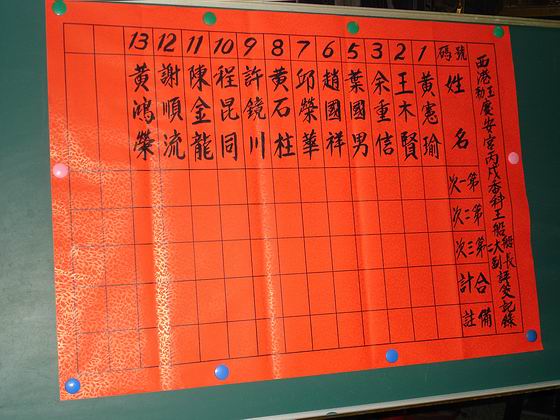 西港玉勅慶安宮丙戌香科王船船長二大副評筊記錄
號碼 姓名 第一次 第二次 第三次 合計 備註
1 黃憲瑜
2 王木賢
3 余重信
5 葉國男
6 趙國祥
7 邱榮華
8 黃石柱
9 許鏡川
10 程昆同
11 陳金龍
12 謝順流
13 黃鴻榮